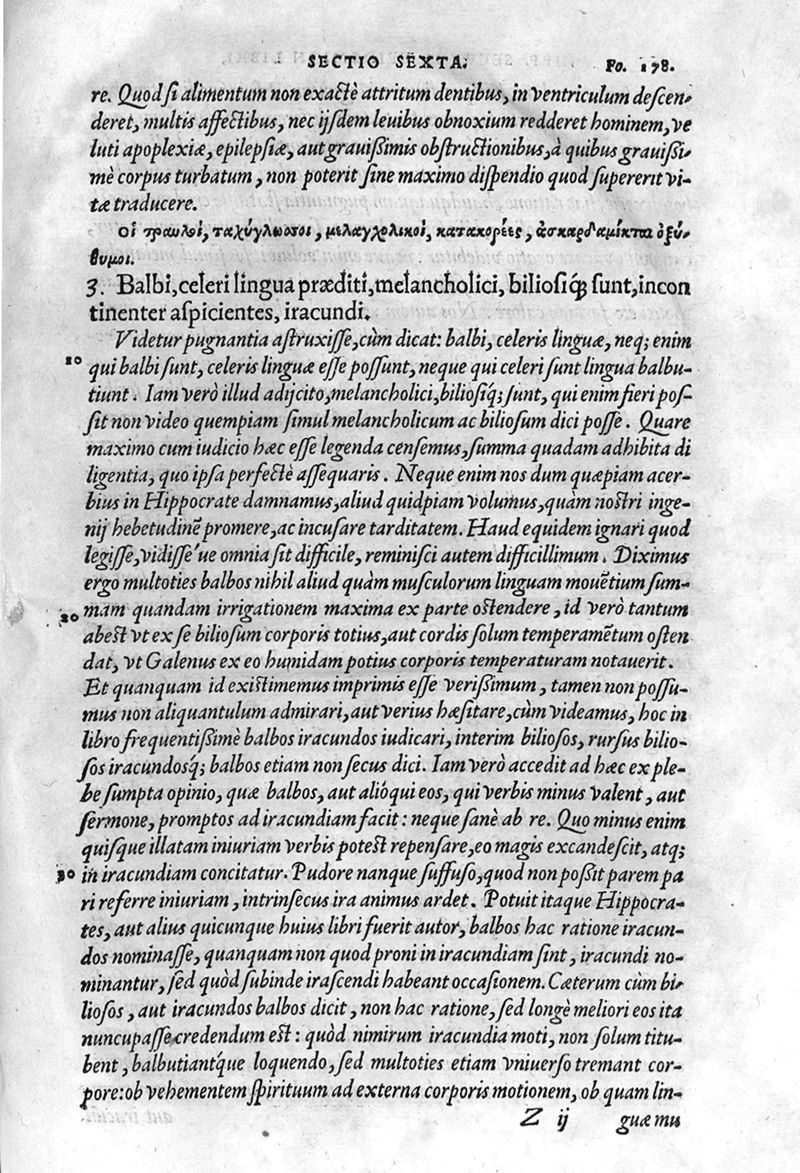 SECTIO SEXTA. Fo. 178.
re. Quod si alimentum non exactè attritum dentibus, in ventriculum descen-
deret, multis affectibus, nec ijsdem leuibus obnoxium redderet hominem, ve
luti apoplexiæ, epilepsiæ, aut grauißimis obstructionibus, à quibus grauißi-
mè corpus turbatum, non poterit sine maximo dispendio quod supererit vi-
tæ traducere.
οἱ τραυλοὶ, ταχύγλωσσοι, μελαγχολικοὶ, κατακορέες, ἀσκαρδαμύκται ὀξύ-
θυμοι.
3. Balbi, celeri lingua præditi, melancholici, biliosiq́; sunt, incon
tinenter aspicientes, iracundi.
Videtur pugnantia astruxisse, cùm dicat: balbi, celeris linguæ, neq; enim
10 qui balbi sunt, celeris linguæ esse possunt, neque qui celeri sunt lingua balbu-
tiunt. Iam verò illud adijcito, melancholici, biliosiq́; sunt, qui enim fieri pos-
sit non video quempiam simul melancholicum ac biliosum dici posse. Quare
maximo cum iudicio hæc esse legenda censemus, summa quadam adhibita di
ligentia, quo ipsa perfectè assequaris. Neque enim nos dum quæpiam acer-
bius in Hippocrate damnamus, aliud quidpiam volumus, quàm nostri inge-
nij hebetudinē promere, ac incusare tarditatem. Haud equidem ignari quod
legisse, vidisse'ue omnia sit difficile, reminisci autem difficillimum. Diximus
ergo multoties balbos nihil aliud quàm musculorum linguam mouētium sum-
20 mam quandam irrigationem maxima ex parte ostendere, id verò tantum
abest vt ex se biliosum corporis totius, aut cordis solum temperamētum osten
dat, vt Galenus ex eo humidam potius corporis temperaturam notauerit.
Et quanquam id existimemus imprimis esse verißimum, tamen non possu-
mus non aliquantulum admirari, aut verius hæsitare, cùm videamus, hoc in
libro frequentißimè balbos iracundos iudicari, interim biliosos, rursus bilio-
sos iracundosq́; balbos etiam non secus dici. Iam verò accedit ad hæc ex ple-
be sumpta opinio, quæ balbos, aut aliòqui eos, qui verbis minus valent, aut
sermone, promptos ad iracundiam facit: neque sanè ab re. Quo minus enim
quisque illatam iniuriam verbis potest repensare, eo magis excandescit, atq;
30 in iracundiam concitatur. Pudore nanque suffuso, quod non poßit parem pa
ri referre iniuriam, intrinsecus ira animus ardet. Potuit itaque Hippocra-
tes, aut alius quicunque huius libri fuerit autor, balbos hac ratione iracun-
dos nominasse, quanquam non quod proni in iracundiam sint, iracundi no-
minantur, sed quòd subinde irascendi habeant occasionem. Cæterum cùm bi-
liosos, aut iracundos balbos dicit, non hac ratione, sed longè meliori eos ita
nuncupasse credendum est: quòd nimirum iracundia moti, non solum titu-
bent, balbutiantq́ue loquendo, sed multoties etiam vniuerso tremant cor-
pore: ob vehementem spirituum ad externa corporis motionem, ob quam lin-
Z ij guæ mu